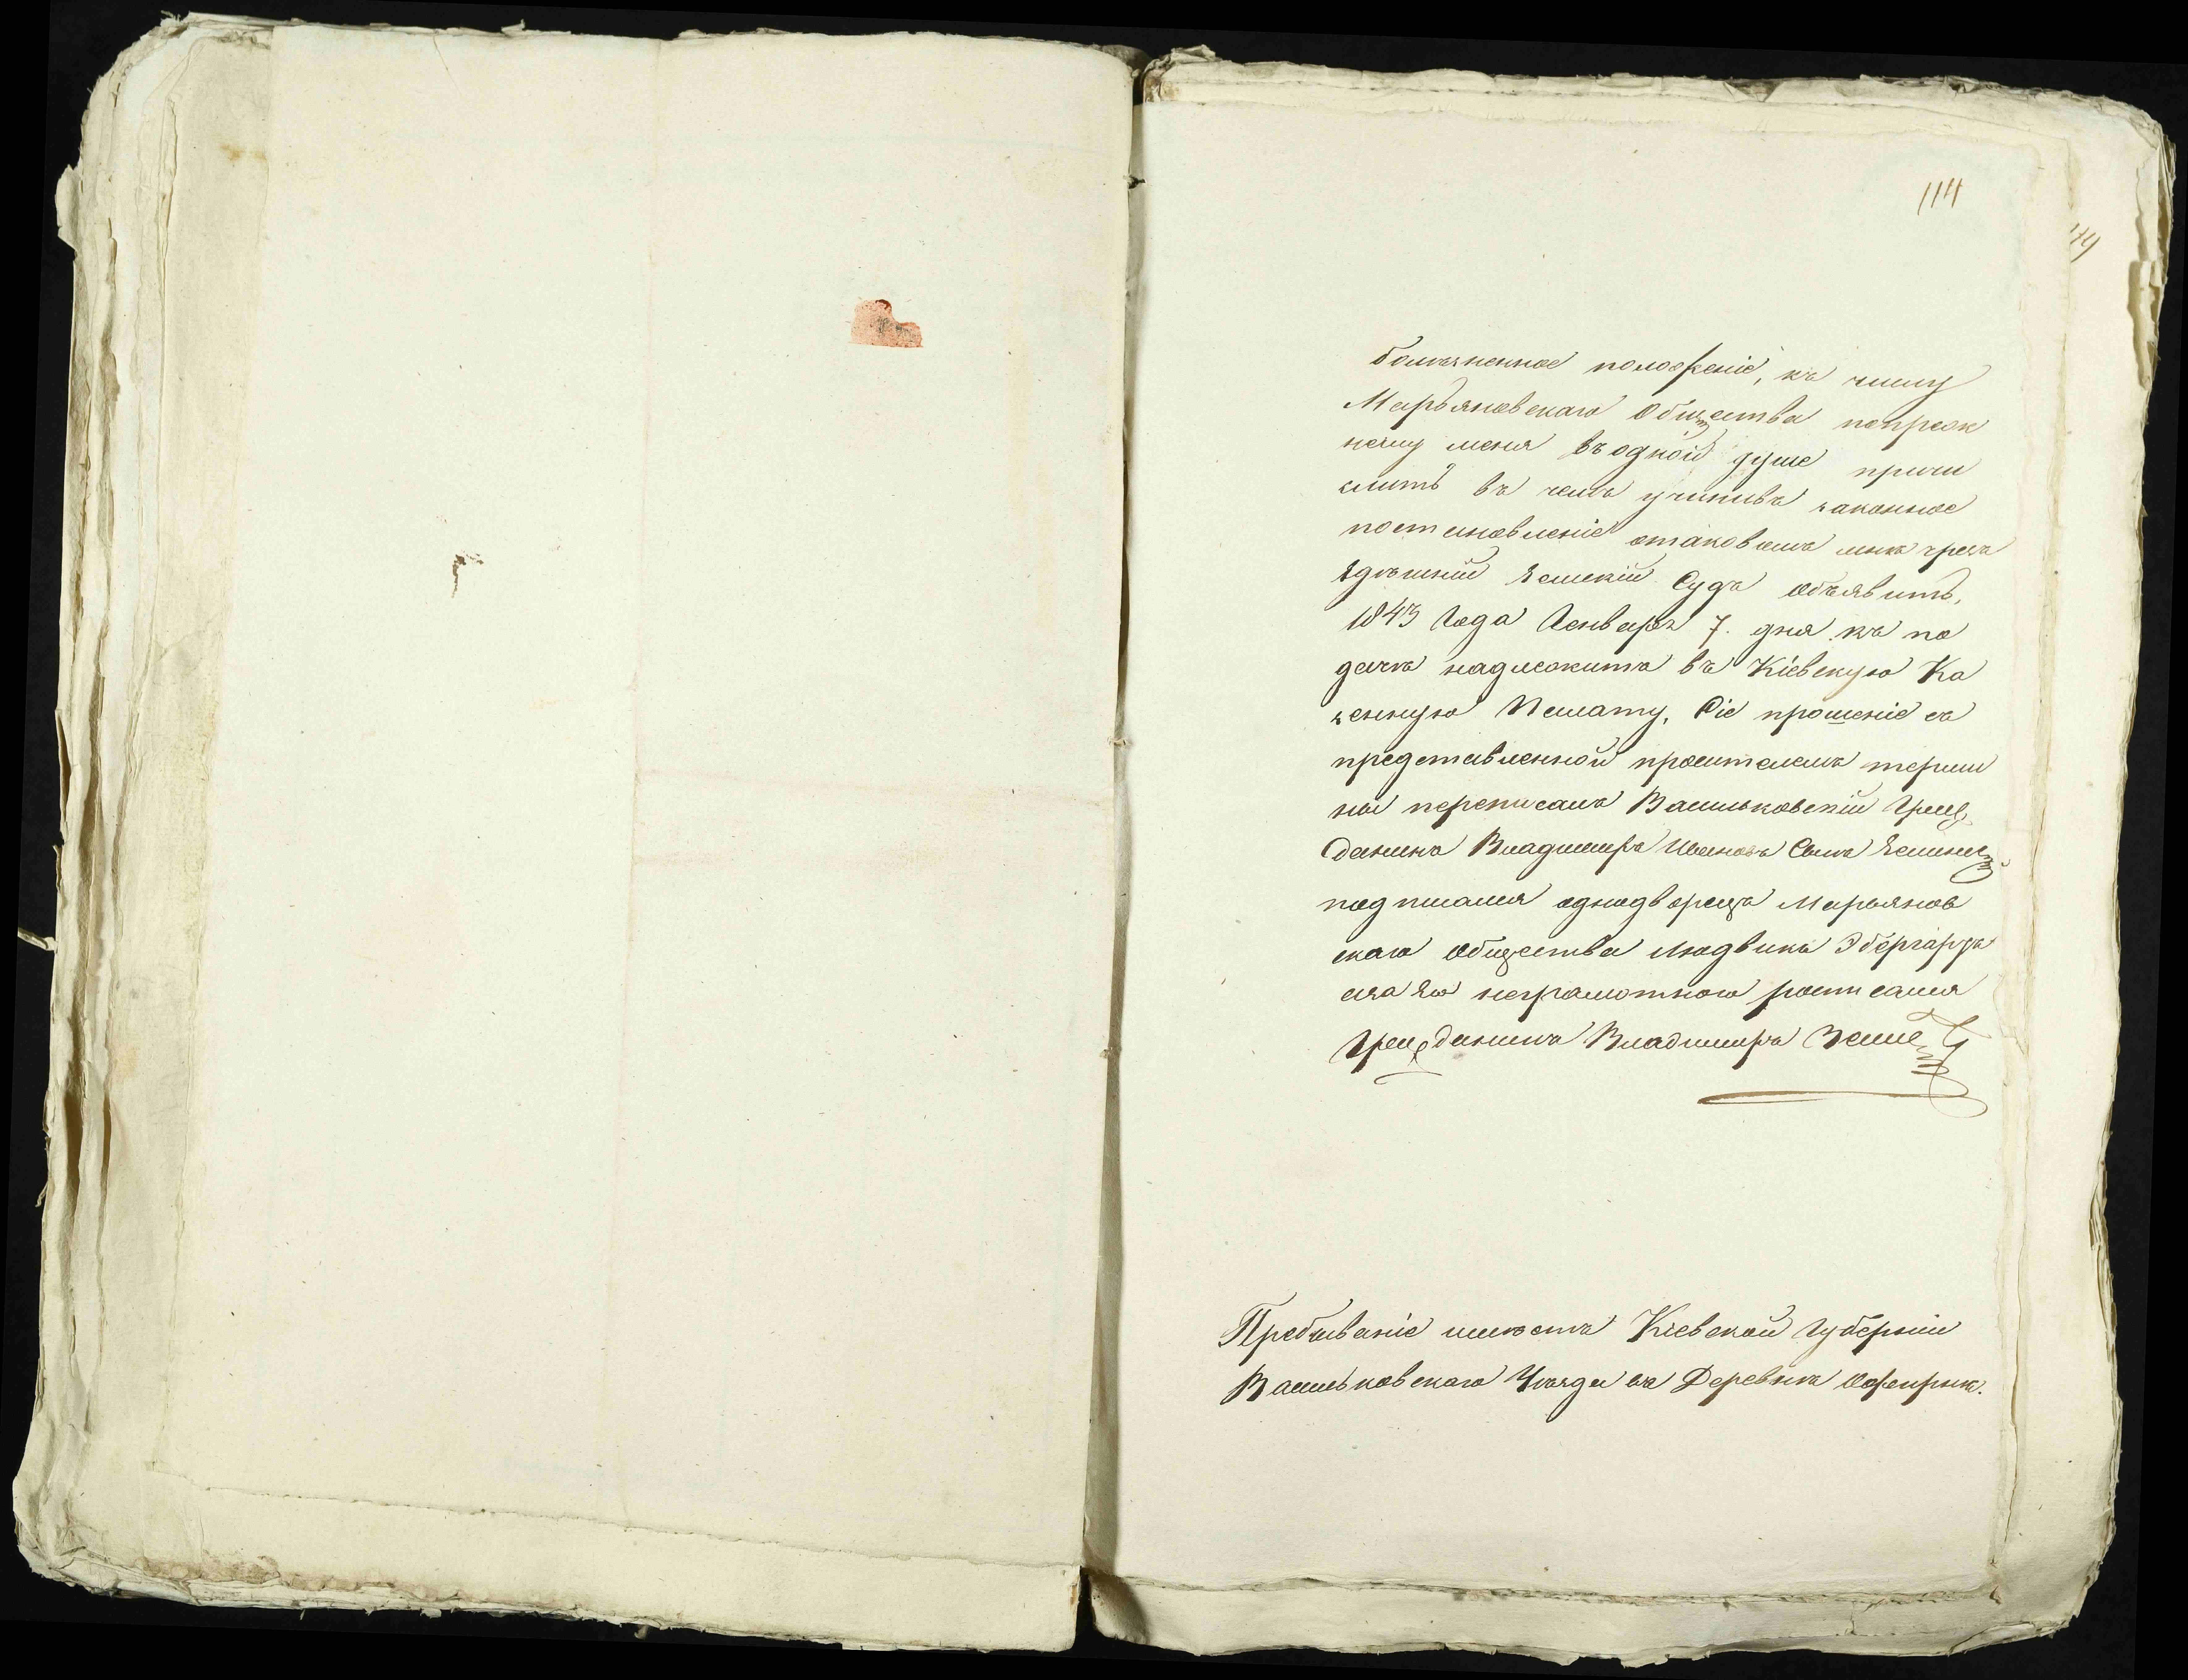 114
119
болезненное положеніе, къ чему
Марьяновскаго Общества попреж
нему меня въ одной душе причи
слить въ чемъ учинивъ законное
постановленіе отаковомъ мнѣ чрезъ
Здешній Земскій Судъ объявить,
1843 Года Генваря 7. дня къ по
дачѣ надлежитъ въ Кіевскую Ка
зенную Палату, Сіе прошеніе съ
представленной просителемъ терми
ны переписалъ Васильковскій Граж
данинъ Владимиръ Ивановъ Сынъ
подписался однодворецъ Марьянов
скаго Общества Людвикъ Эбергардъ
а за его неграмотного росписался
Гражданинъ Владимиръ
Пребываніе имѣетъ Кіевской Губерніи
Васильковскаго Уезда въ Деревнѣ Офирнѣ.